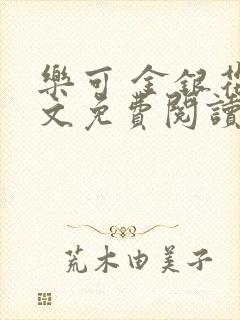 樂可 金銀花
文免費閱讀
荒木由美子